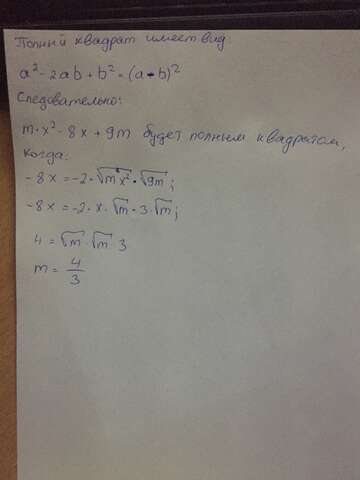 Полный квадрат имеет вид:
a² - 2ab + b² = (a - b)²
Следовательно:
m·x² - 8x + 9m будет полным квадратом,
когда:
-8x = -2·√mx²·√9m;
-8x = -2·x·√m·3·√m;
4 = √m·√m 3
m = 4/3